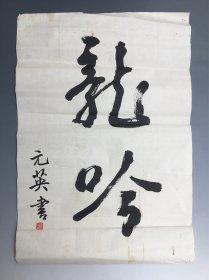 龍吟
元英書